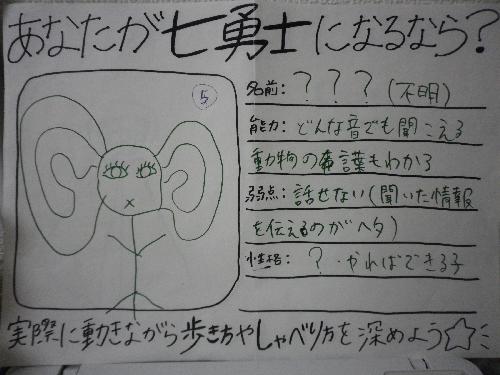 あなたが七勇士になるなら?
5
名前: ? ? ? (不明)
能力: どんな音でも聞こえる
動物の言葉もわかる
弱点: 話せない(聞いた情報
を伝えるのがヘタ)
性格: ? ・やればできる子
実際に動きながら歩き方やしゃべり方を深めよう☆